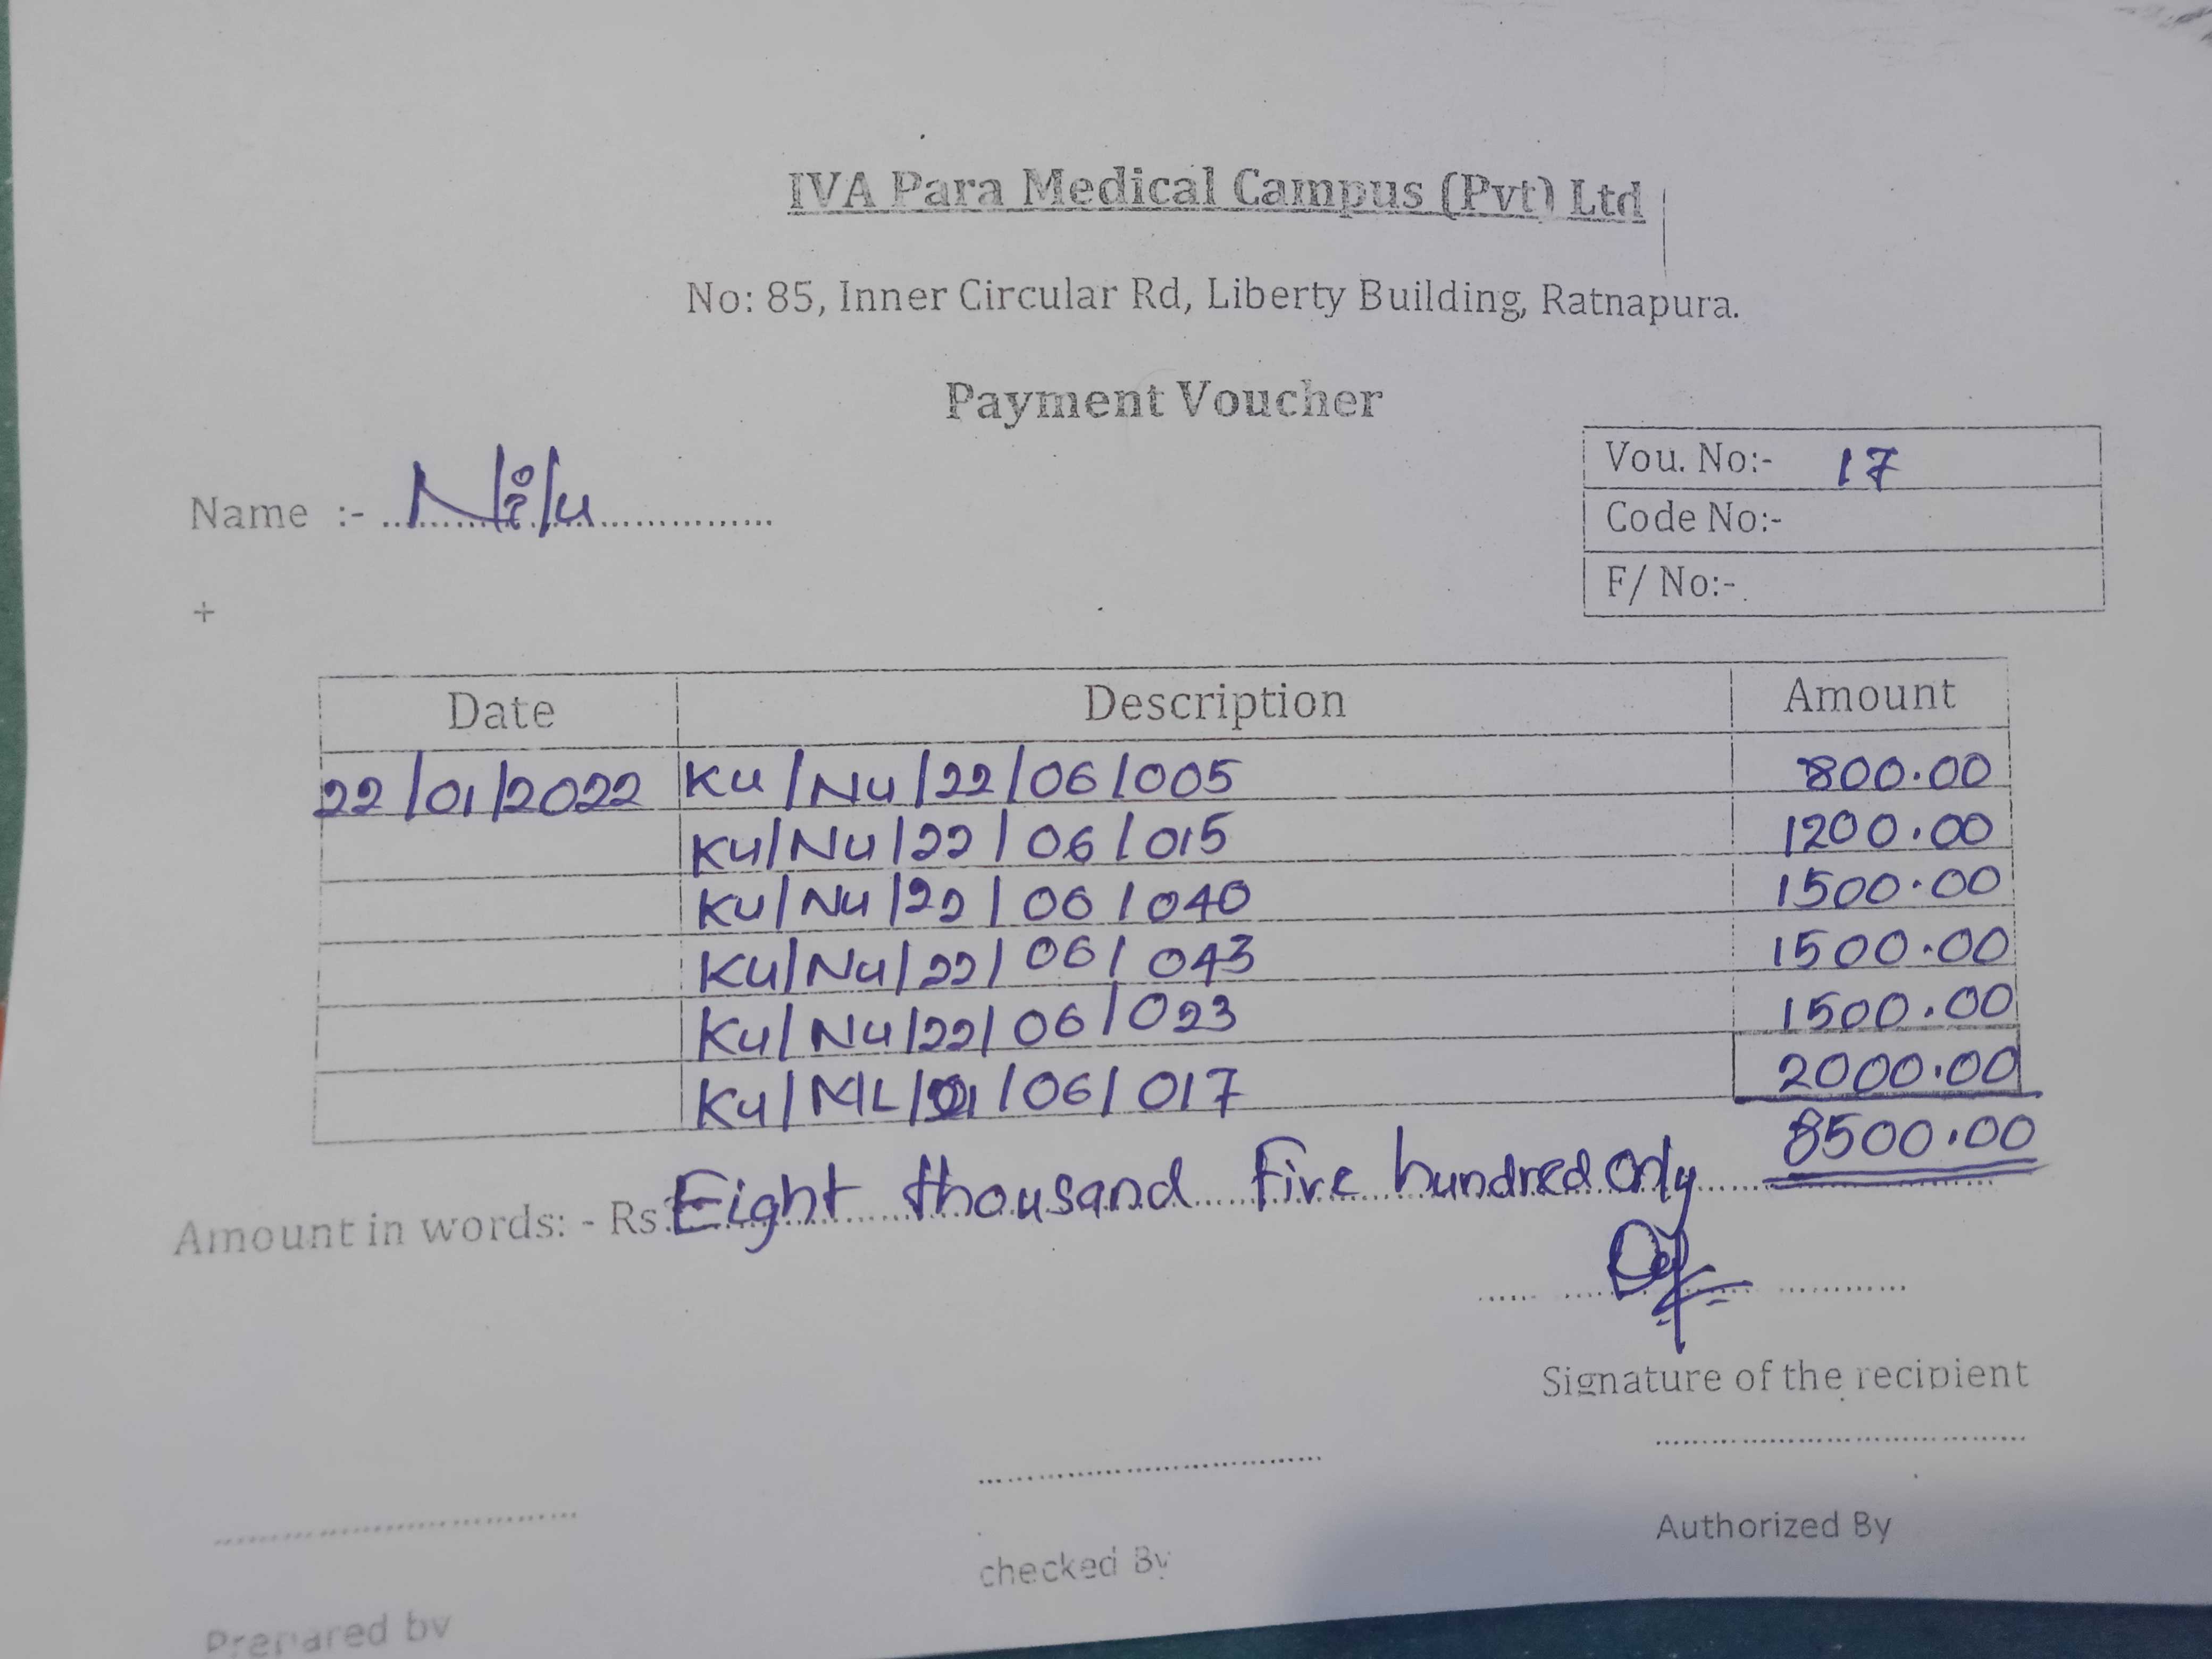 IVA Para Medical Campus (Pvt) Ltd
No: 85, Inner Circular Rd, Liberty Building, Ratnapura.
Payment Voucher
Vou. No:- 17
Name :- Nilu
Code No:-
F/ No:-
+
Date Description Amount
22/01/2022 Ku/Nu/22/06/005 800.00
Ku/Nu/22/06/015 1200.00
Ku/Nu/22/06/040 1500.00
Ku/Nu/22/06/043 1500.00
Ku/Nu/22/06/023 1500.00
Ku/NL/21/06/017 2000.00
8500.00
Amount in words: - Rs: Eight thousand Five hundred Only
Signature of the recipient
Authorized By
checked By
Prepared by